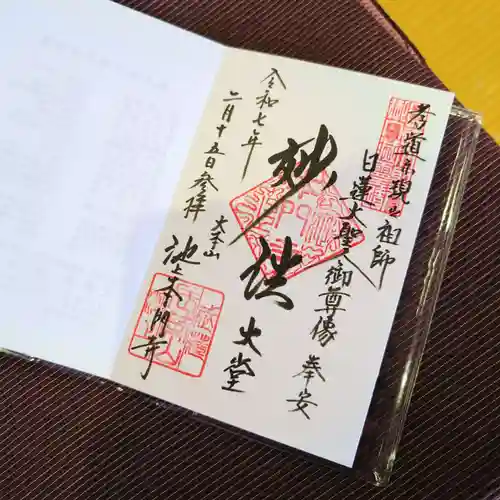 孝道示現の祖師
日蓮大聖人御尊像 奉安
妙法
大堂
令和七年
二月十五日参拝
大本山
池上本門寺